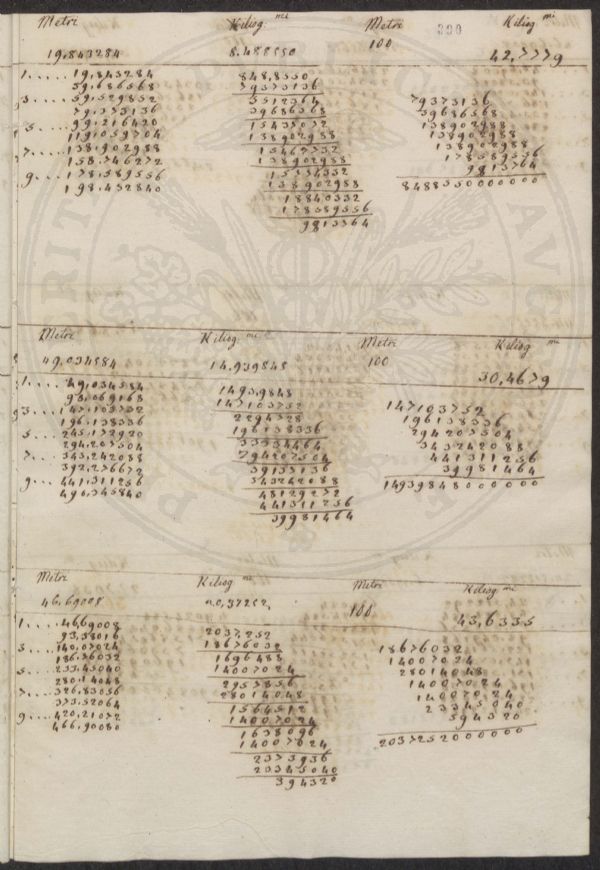 390
Metri Kiliog mi Metri Kiliog mi
19,843284 8.488550 100 42,7779
1..... 19,843284
39,686568
3..... 59,529852
79,373136
5..... 99,216420
119,059704
7..... 138,902988
158,746272
9..... 178,589556
198,432840
848,8550
79373136
5512364
39686568
15437072
138902988
15467732
138902988
15774332
138902988
18840332
178589556
9813764
79373136
39686568
138902988
138902988
138902988
178589556
9813764
8488550000000
Metri Kiliog mi Metri Kiliog mi
49,034584 14,939848 100 30,4679
1.... 49,034584
98,069168
3... 147,103752
196,138336
5... 245,172920
294,207504
7... 343,242088
392,276672
9... 441,311256
490,345840
1493,9848
147103752
2294728
196138336
33334464
294207504
39137136
343242088
48129272
441311256
39981464
147103752
196138336
294207504
343242088
441311256
39981464
14939848000000
Metri Kiliog mi Metri Kiliog mi
46,69008 20,37252 100 43,6335
1.... 46,69008
93,38016
3.... 140,07024
186,76032
5.... 233,45040
280,14048
7.... 326,83056
373,52064
9.... 420,21072
466,90080
2037,252
18676032
1696488
14007024
2957856
28014048
1564512
14007024
1638096
14007024
2373936
23345040
394320
18676032
14007024
28014048
14007024
14007024
23345040
394320
2037252000000